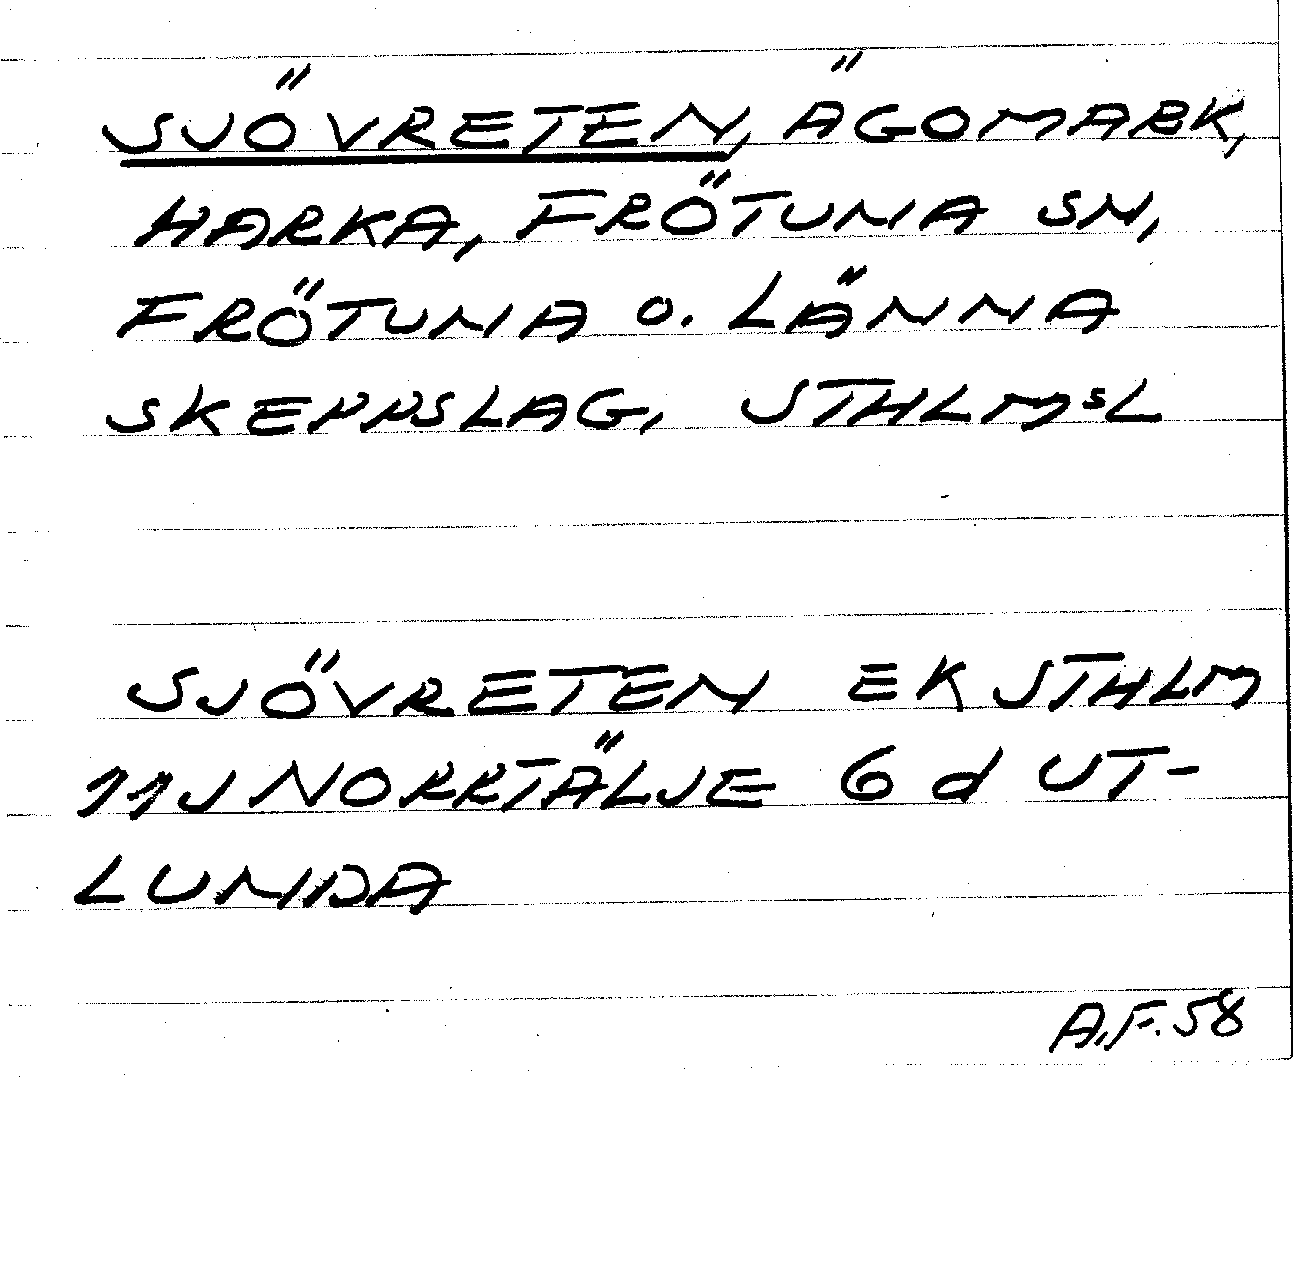 SJÖVRETEN, ÄGOMARK,
HARKA, FRÖTUNA SN,
FRÖTUNA o. LÄNNA
SKEPPSLAG, STHLMSL
SJÖVRETEN EK STHLM
11J NORRTÄLJE 6 d UT-
LUNDA
A.F.58